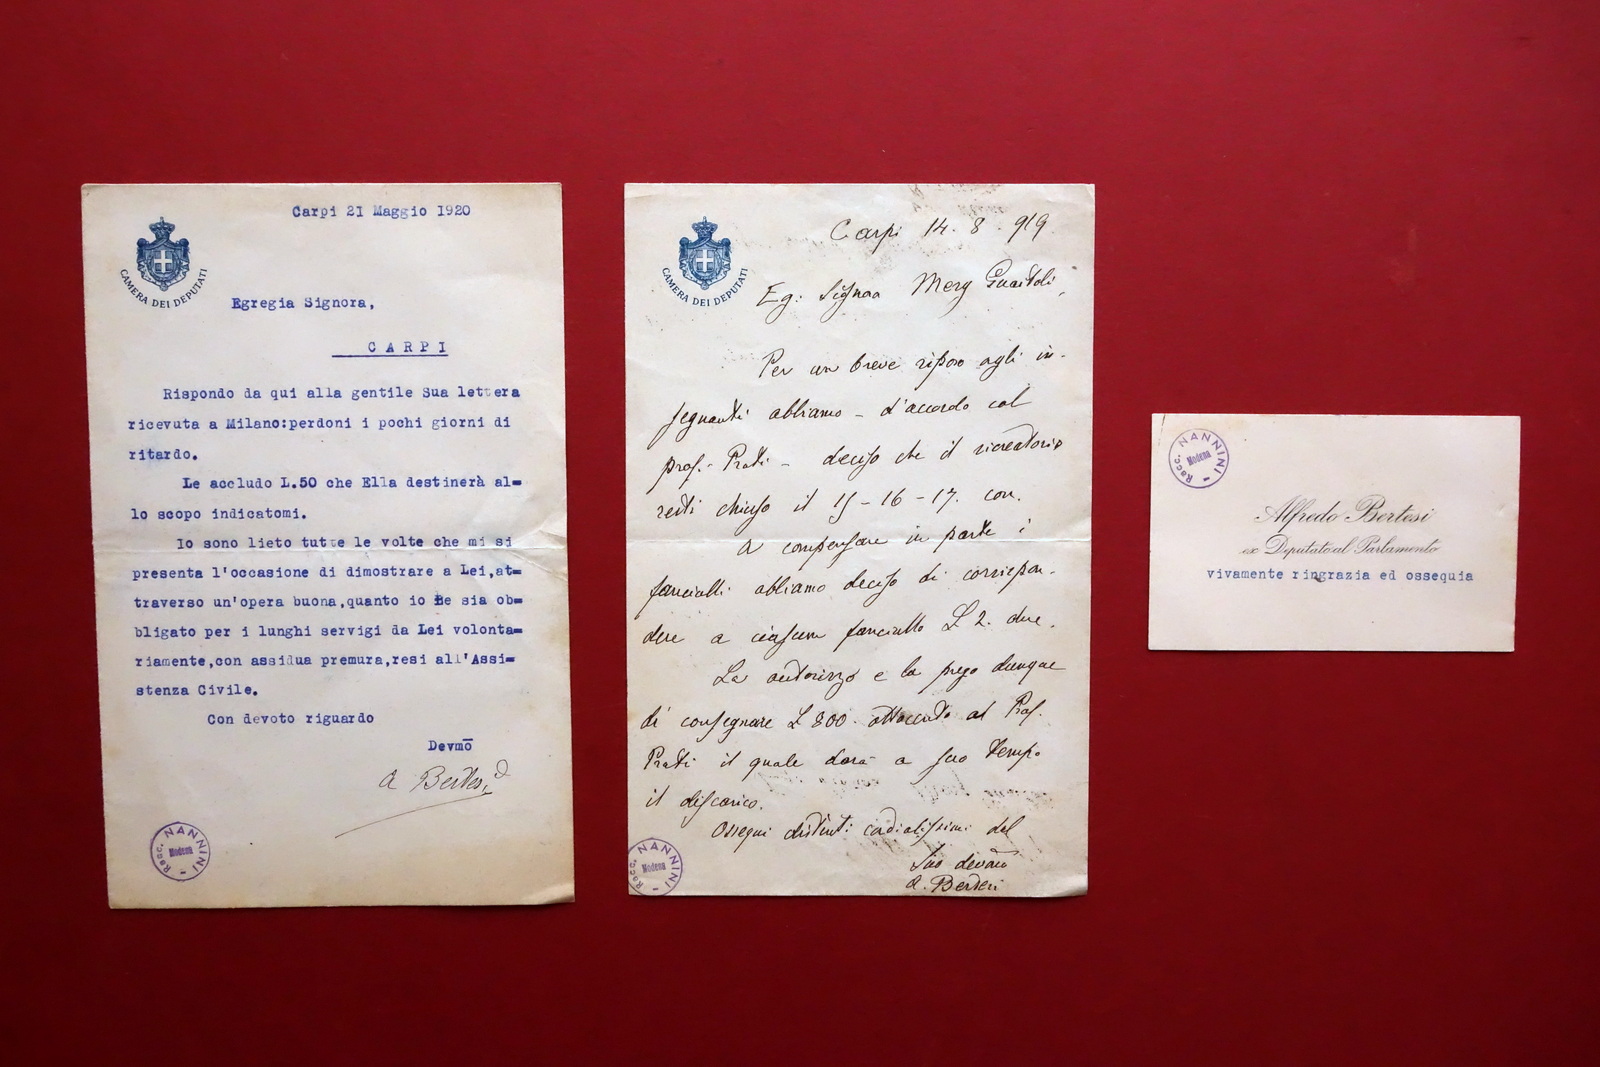 Carpi 21 Maggio 1920
CAMERA DEI DEPUTATI
Egregia Signora,
CARPI
Rispondo da qui alla gentile Sua lettera
ricevuta a Milano:perdoni i pochi giorni di
ritardo.
Le accludo L.50 che Ella destinerà al=
lo scopo indicatomi.
Io sono lieto tutte le volte che mi si
presenta l'occasione di dimostrare a Lei,at=
traverso un'opera buona,quanto io Le sia ob=
bligato per i lunghi servigi da Lei volonta=
riamente,con assidua premura,resi all'Assi=
stenza Civile.
Con devoto riguardo
Devmo
A Bertesi
Racc. NANNINI - Modena
Carpi 14.8.919
CAMERA DEI DEPUTATI
Eg: Signora Mery Guaitoli,
Per un breve riposo agli in-
segnanti abbiamo - d'accordo col
prof. Prati - deciso che il ricreatorio
resti chiuso il 15-16-17. con.
A compensare in parte i
fanciulli abbiamo deciso di corrispon-
dere a ciascun fanciullo L 2. due.
La autorizzo e la prego dunque
di consegnare L 800. ottocento al Prof.
Prati il quale darà a suo tempo
il discarico.
Ossequi distinti cordialissimi del
Suo devmo
A. Bertesi
Racc. NANNINI - Modena
Racc. NANNINI - Modena
Alfredo Bertesi
ex Deputato al Parlamento
vivamente ringrazia ed ossequia